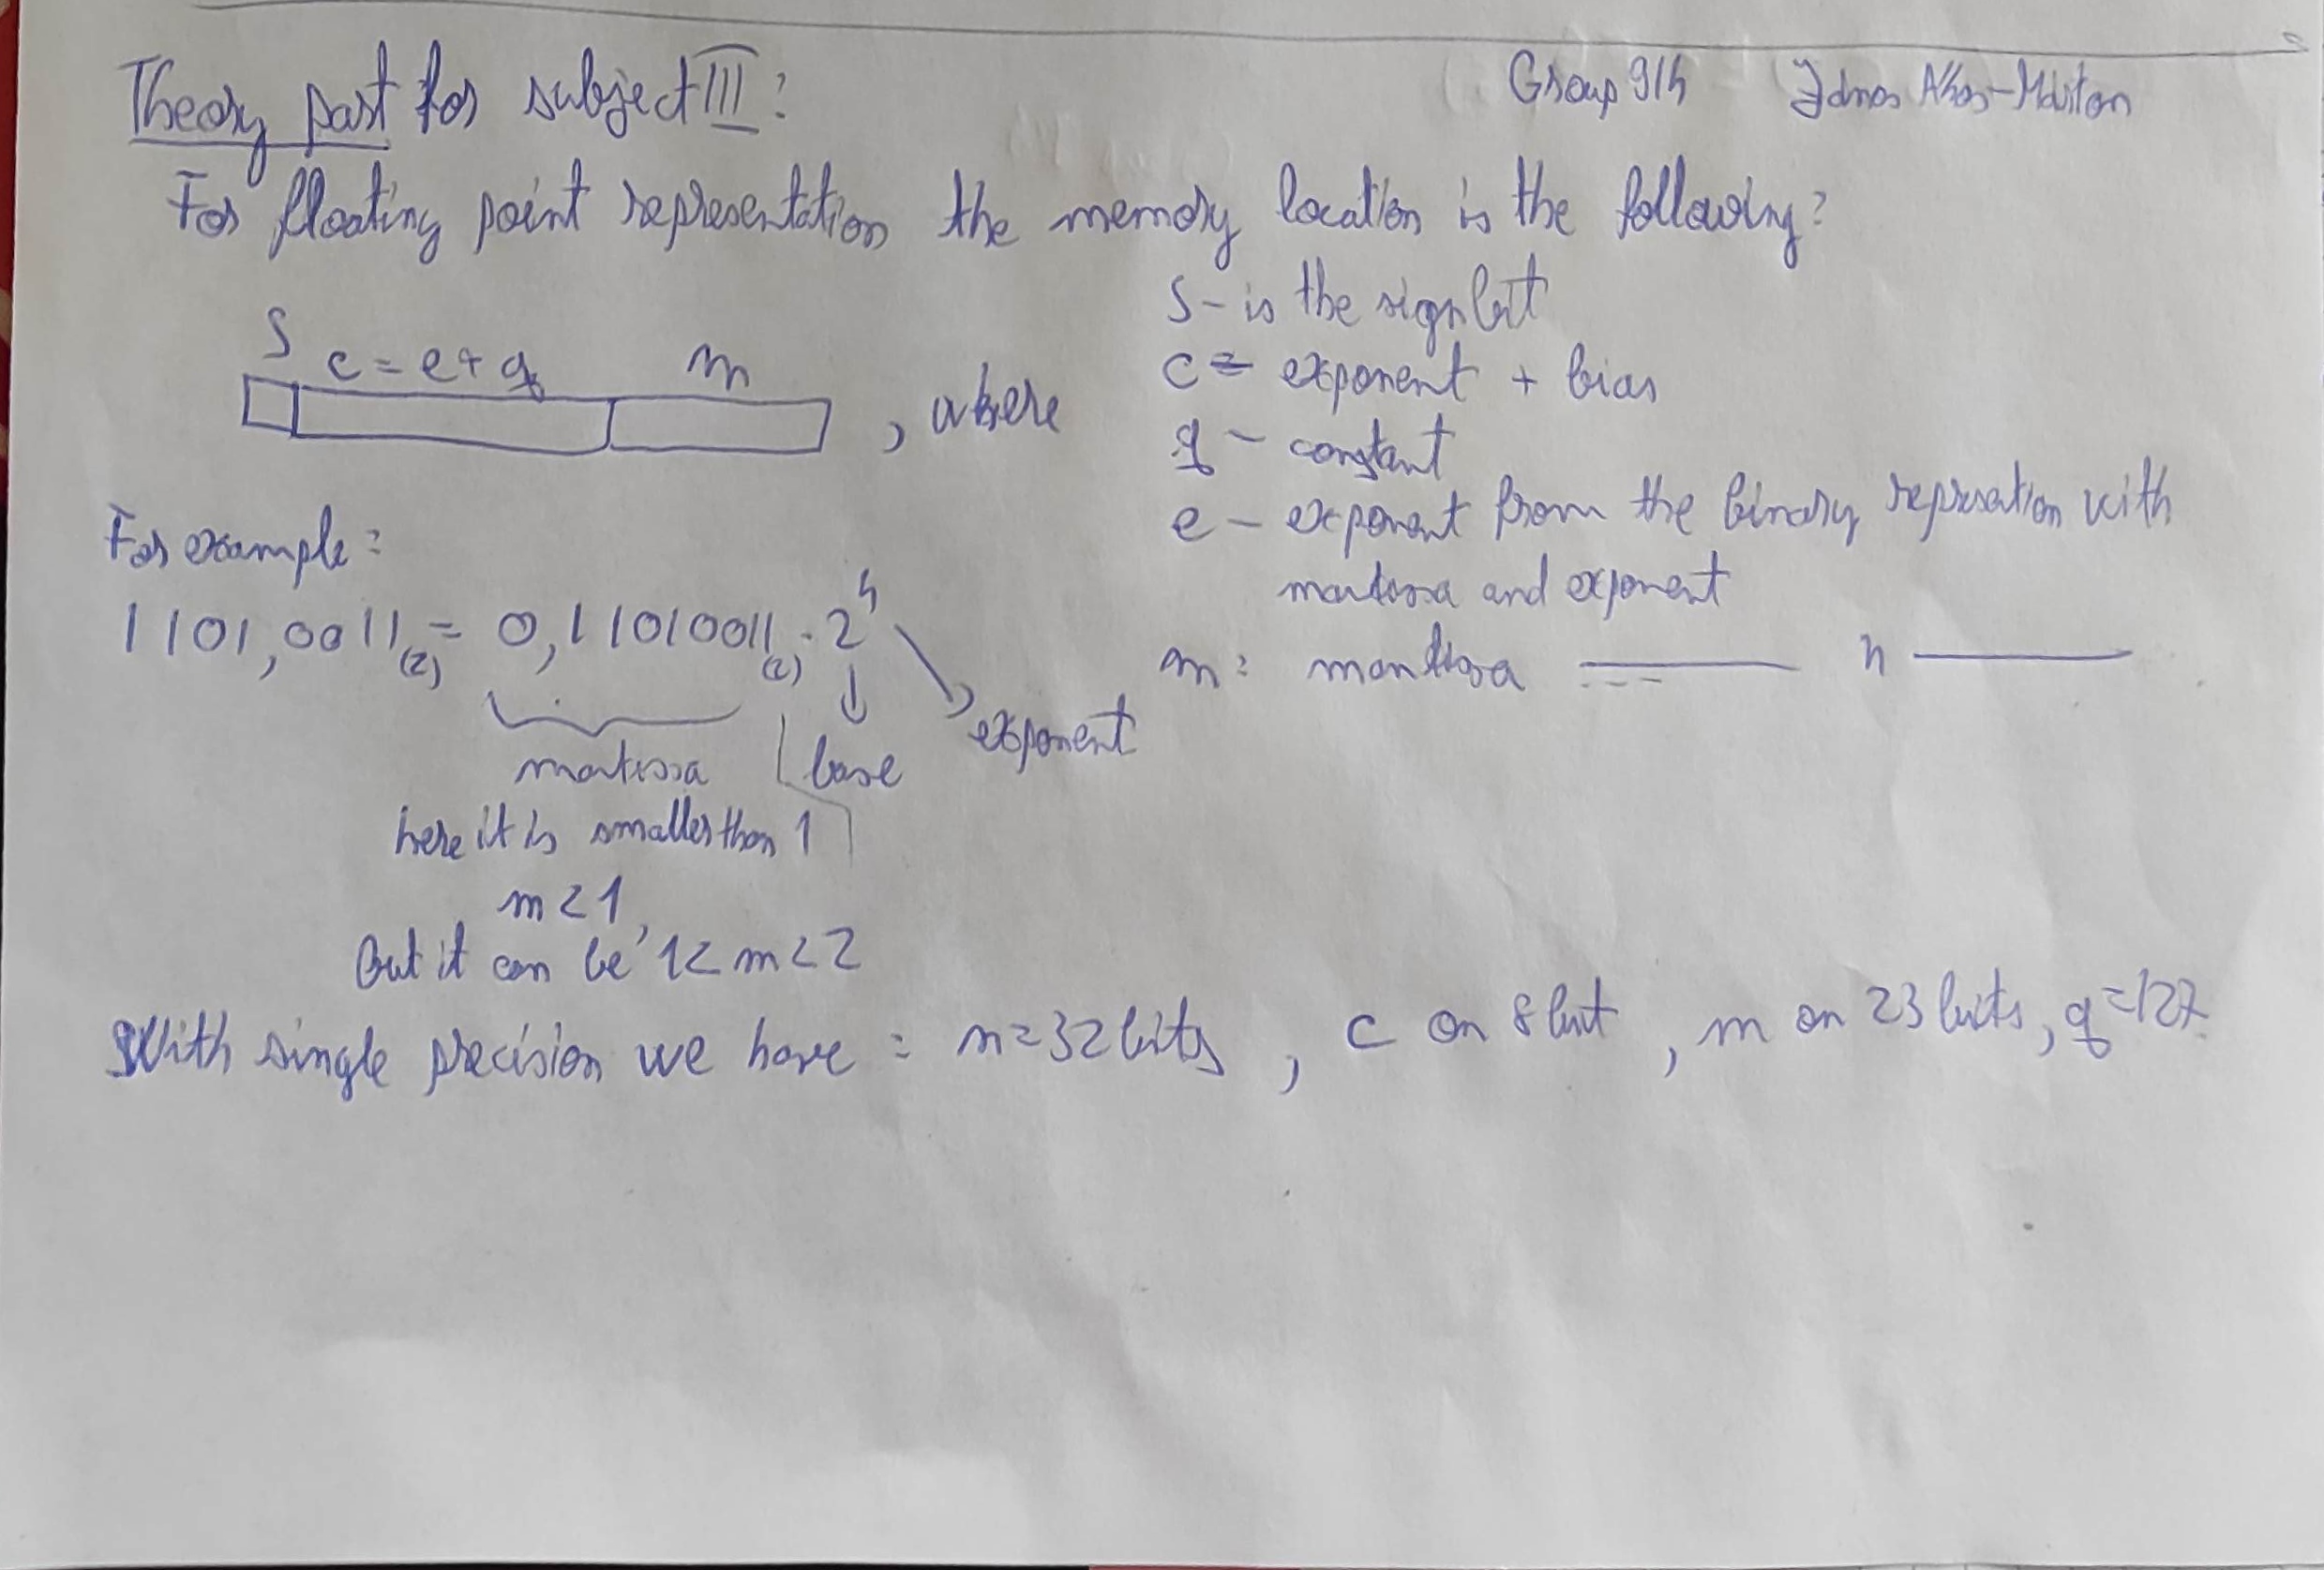 Theory part for subject III: Group 914 János Ákos-Márton
For floating point representation the memory location is the following:
S c = e + q m , where
S - is the sign bit
c = exponent + bias
q - constant
e - exponent from the binary represention with
mantissa and exponent
m: mantissa —— " ——
For example:
1101,0011(2) = 0,11010011(2) · 2^4
mantissa base exponent
here it is smaller than 1
m < 1,
But it can be 1 < m < 2
With single precision we have: n = 32 bits, c on 8 bit, m on 23 bits, q = 127.